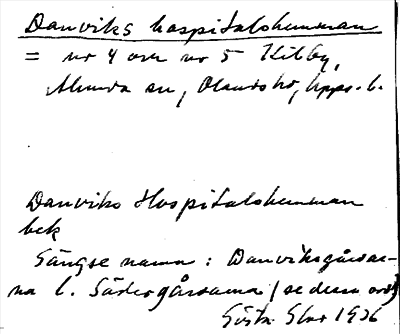 Danviks hospitalshemman
= nr 4 och nr 5 Kilby,
Almunda sn, Olands hd, Upps. l.
Danviks Hospitalshemman
bek
Sängse namn: Danviksgårdar-
na l. Södergårdarna (se dessa ord)
Gösta 1936